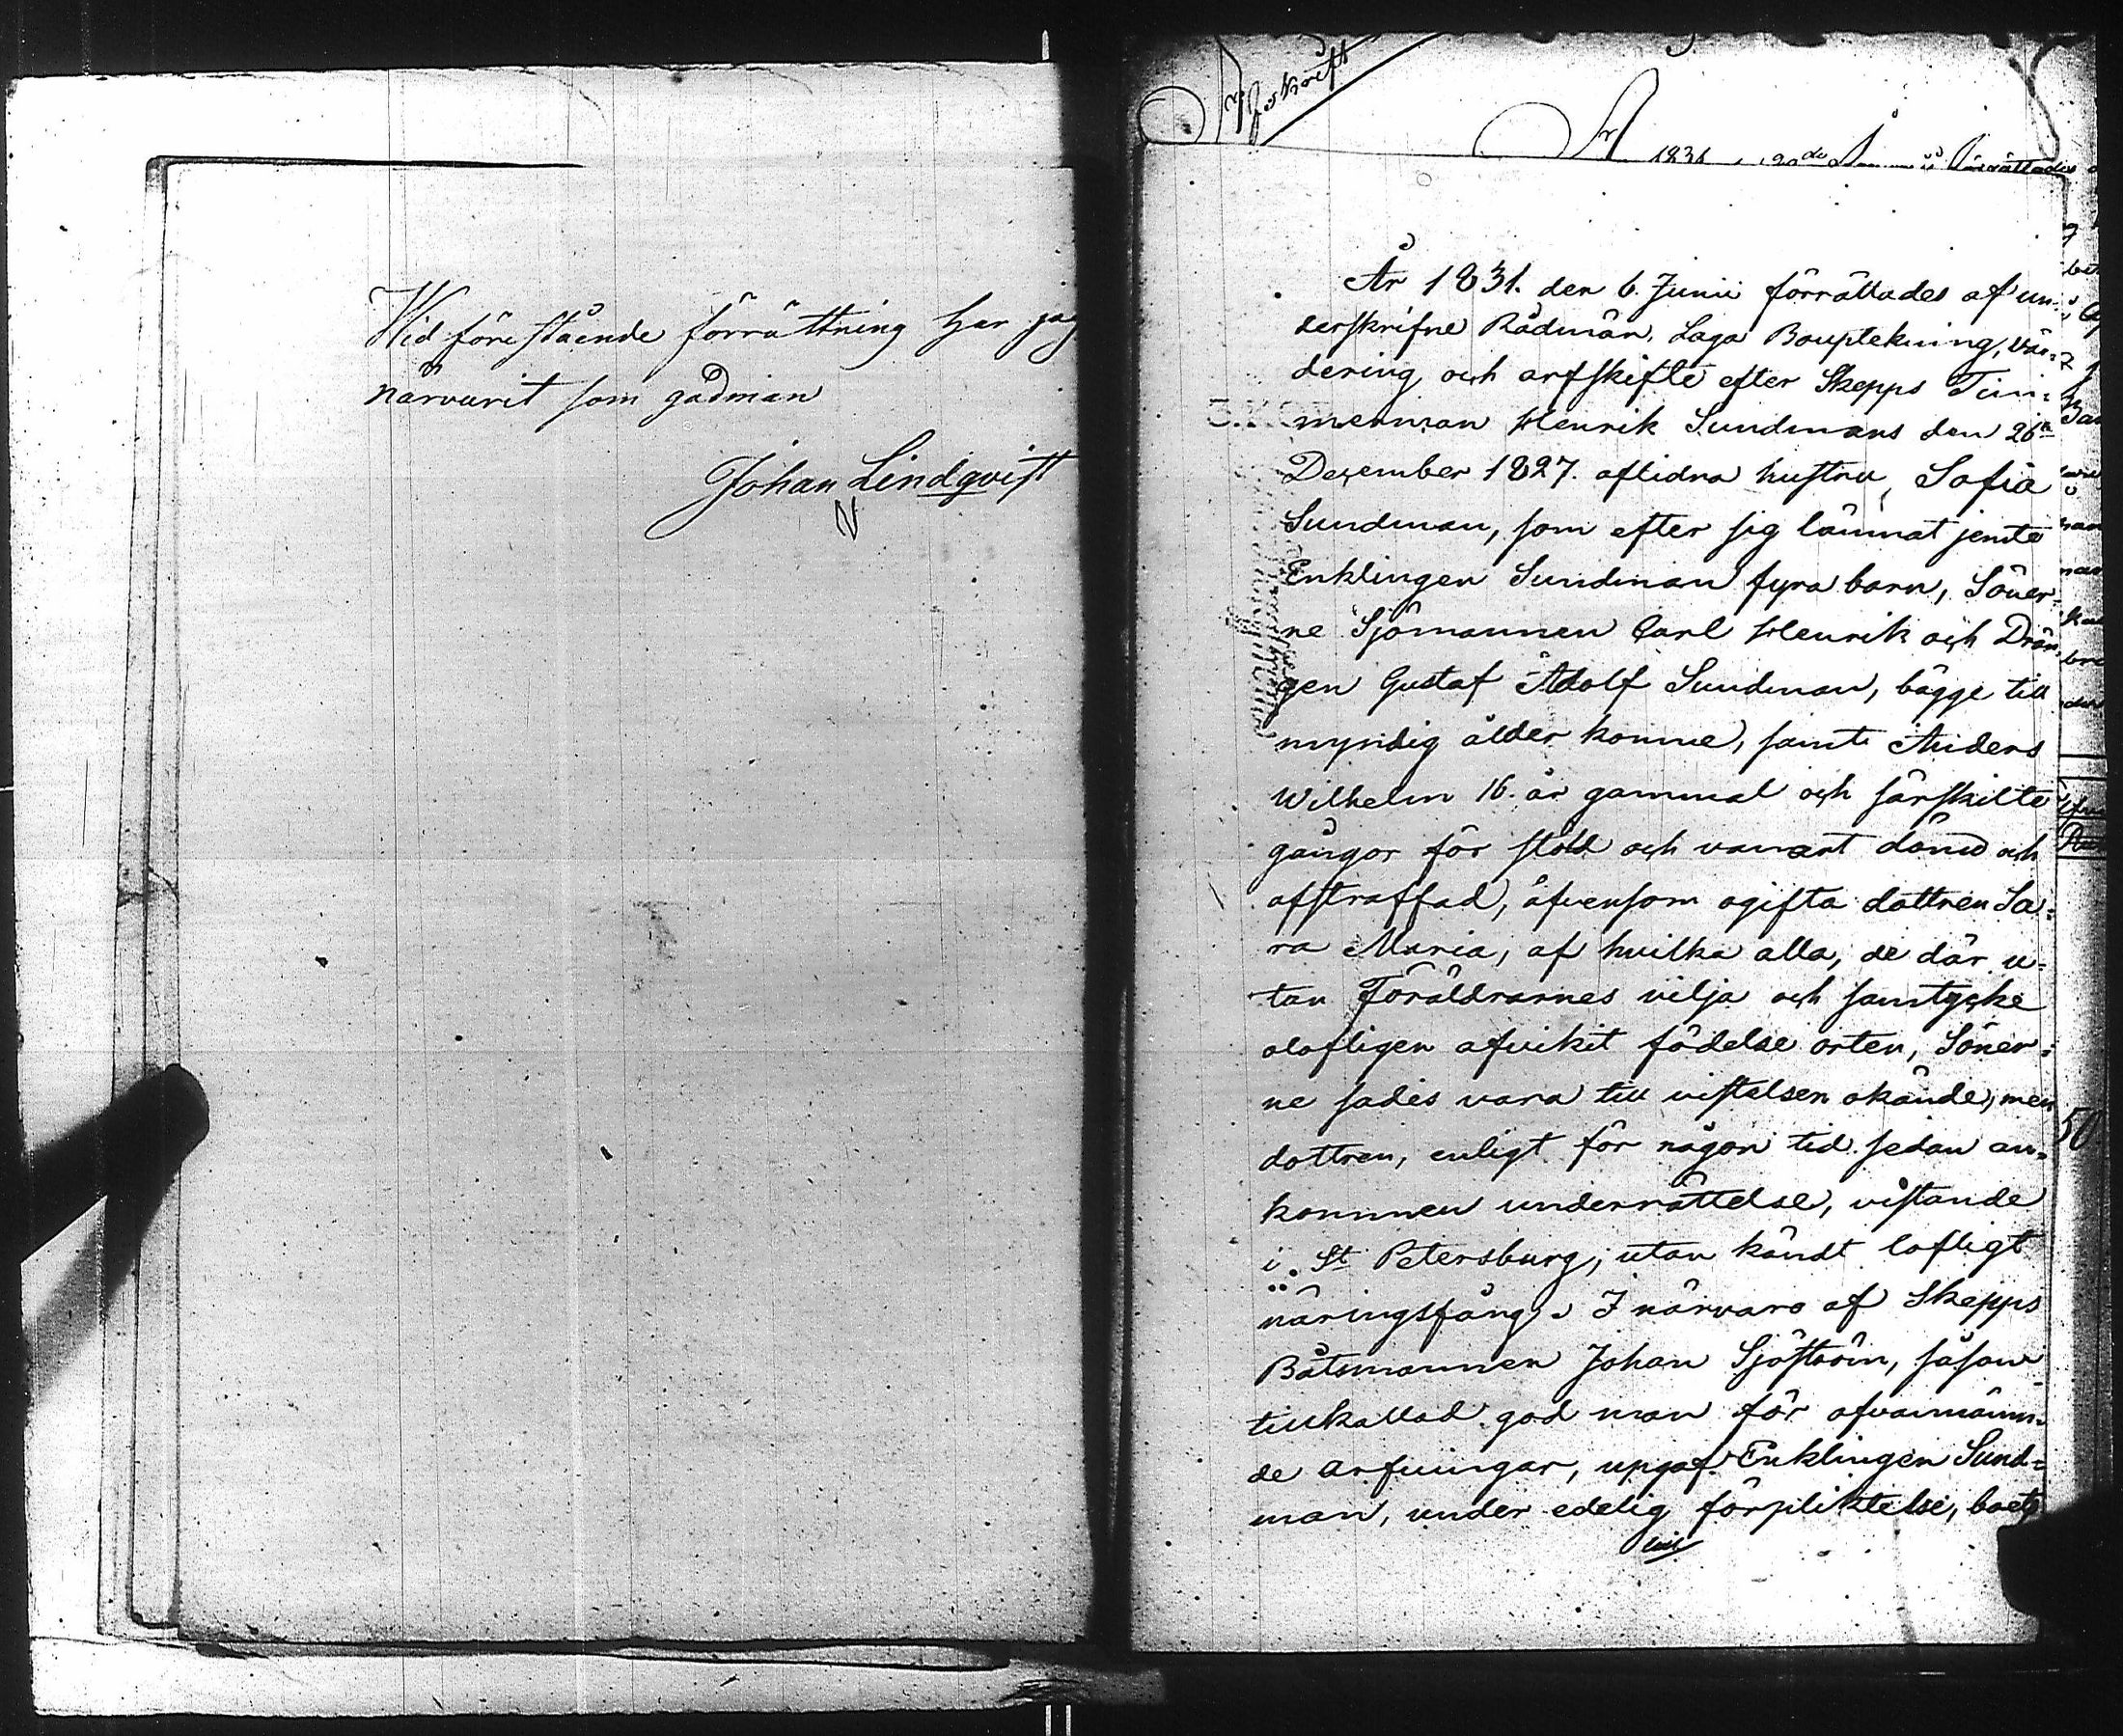 Wid förestående förrättning har jag
närvarit som gadman
Johan Lindqvist
Afskrift
1831 20de Förrättades
År 1831. den 6. Junii förrättades af un-
derskrifne Rådmän, Laga Bouptekning, vär-
dering och arfskifte efter Skepps Tim-
merman Henrik Sundmans den 26te
December 1827. aflidna hustru, Sofia
Sundman, som efter sig lämnat jemte
Enklingen Sundman fyra barn, Söner-
ne Sjömannen Carl Henrik och Drän-
gen Gustaf Adolf Sundman, bägge till
myndig ålder komne, samt Anders
Wilhelm 16. år gammal och särskilte
gångor för stöld och vanart dömd och
afstraffad, äfvensom ogifta dottren Sa-
ra Maria, af hvilka alla, de där u-
tan Föräldrarnes vilja och samtycke
olofligen afvikit födelse orten, Söner-
ne sades vara till vistelsen okände, men
dottren, enligt för någon tid sedan an-
kommen underrättelse, vistande
i St Petersburg, utan kändt lofligt
näringsfång. I närvaro af Skepps
Båtsmannen Johan Sjöström, såsom
tillkallad god man för ofvannämn-
de arfvingar, upgaf Enklingen Sund-
man, under edelig förpliktelse, boets
50